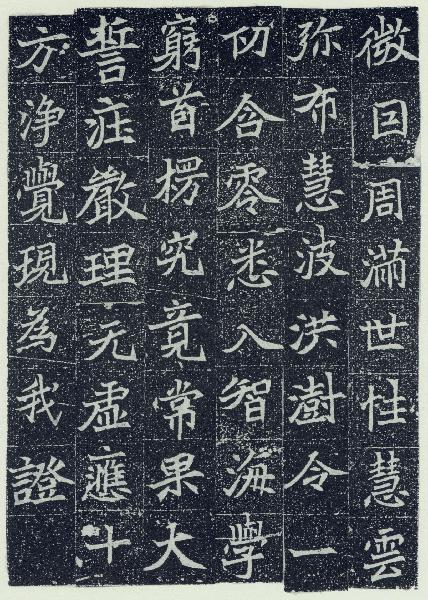 微囙周滿世性慧雲
弥布慧波洪澍令一
切含零悉入智海學
窮首楞究竟常果大
誓庄嚴理无虛應十
方淨覺現為我證